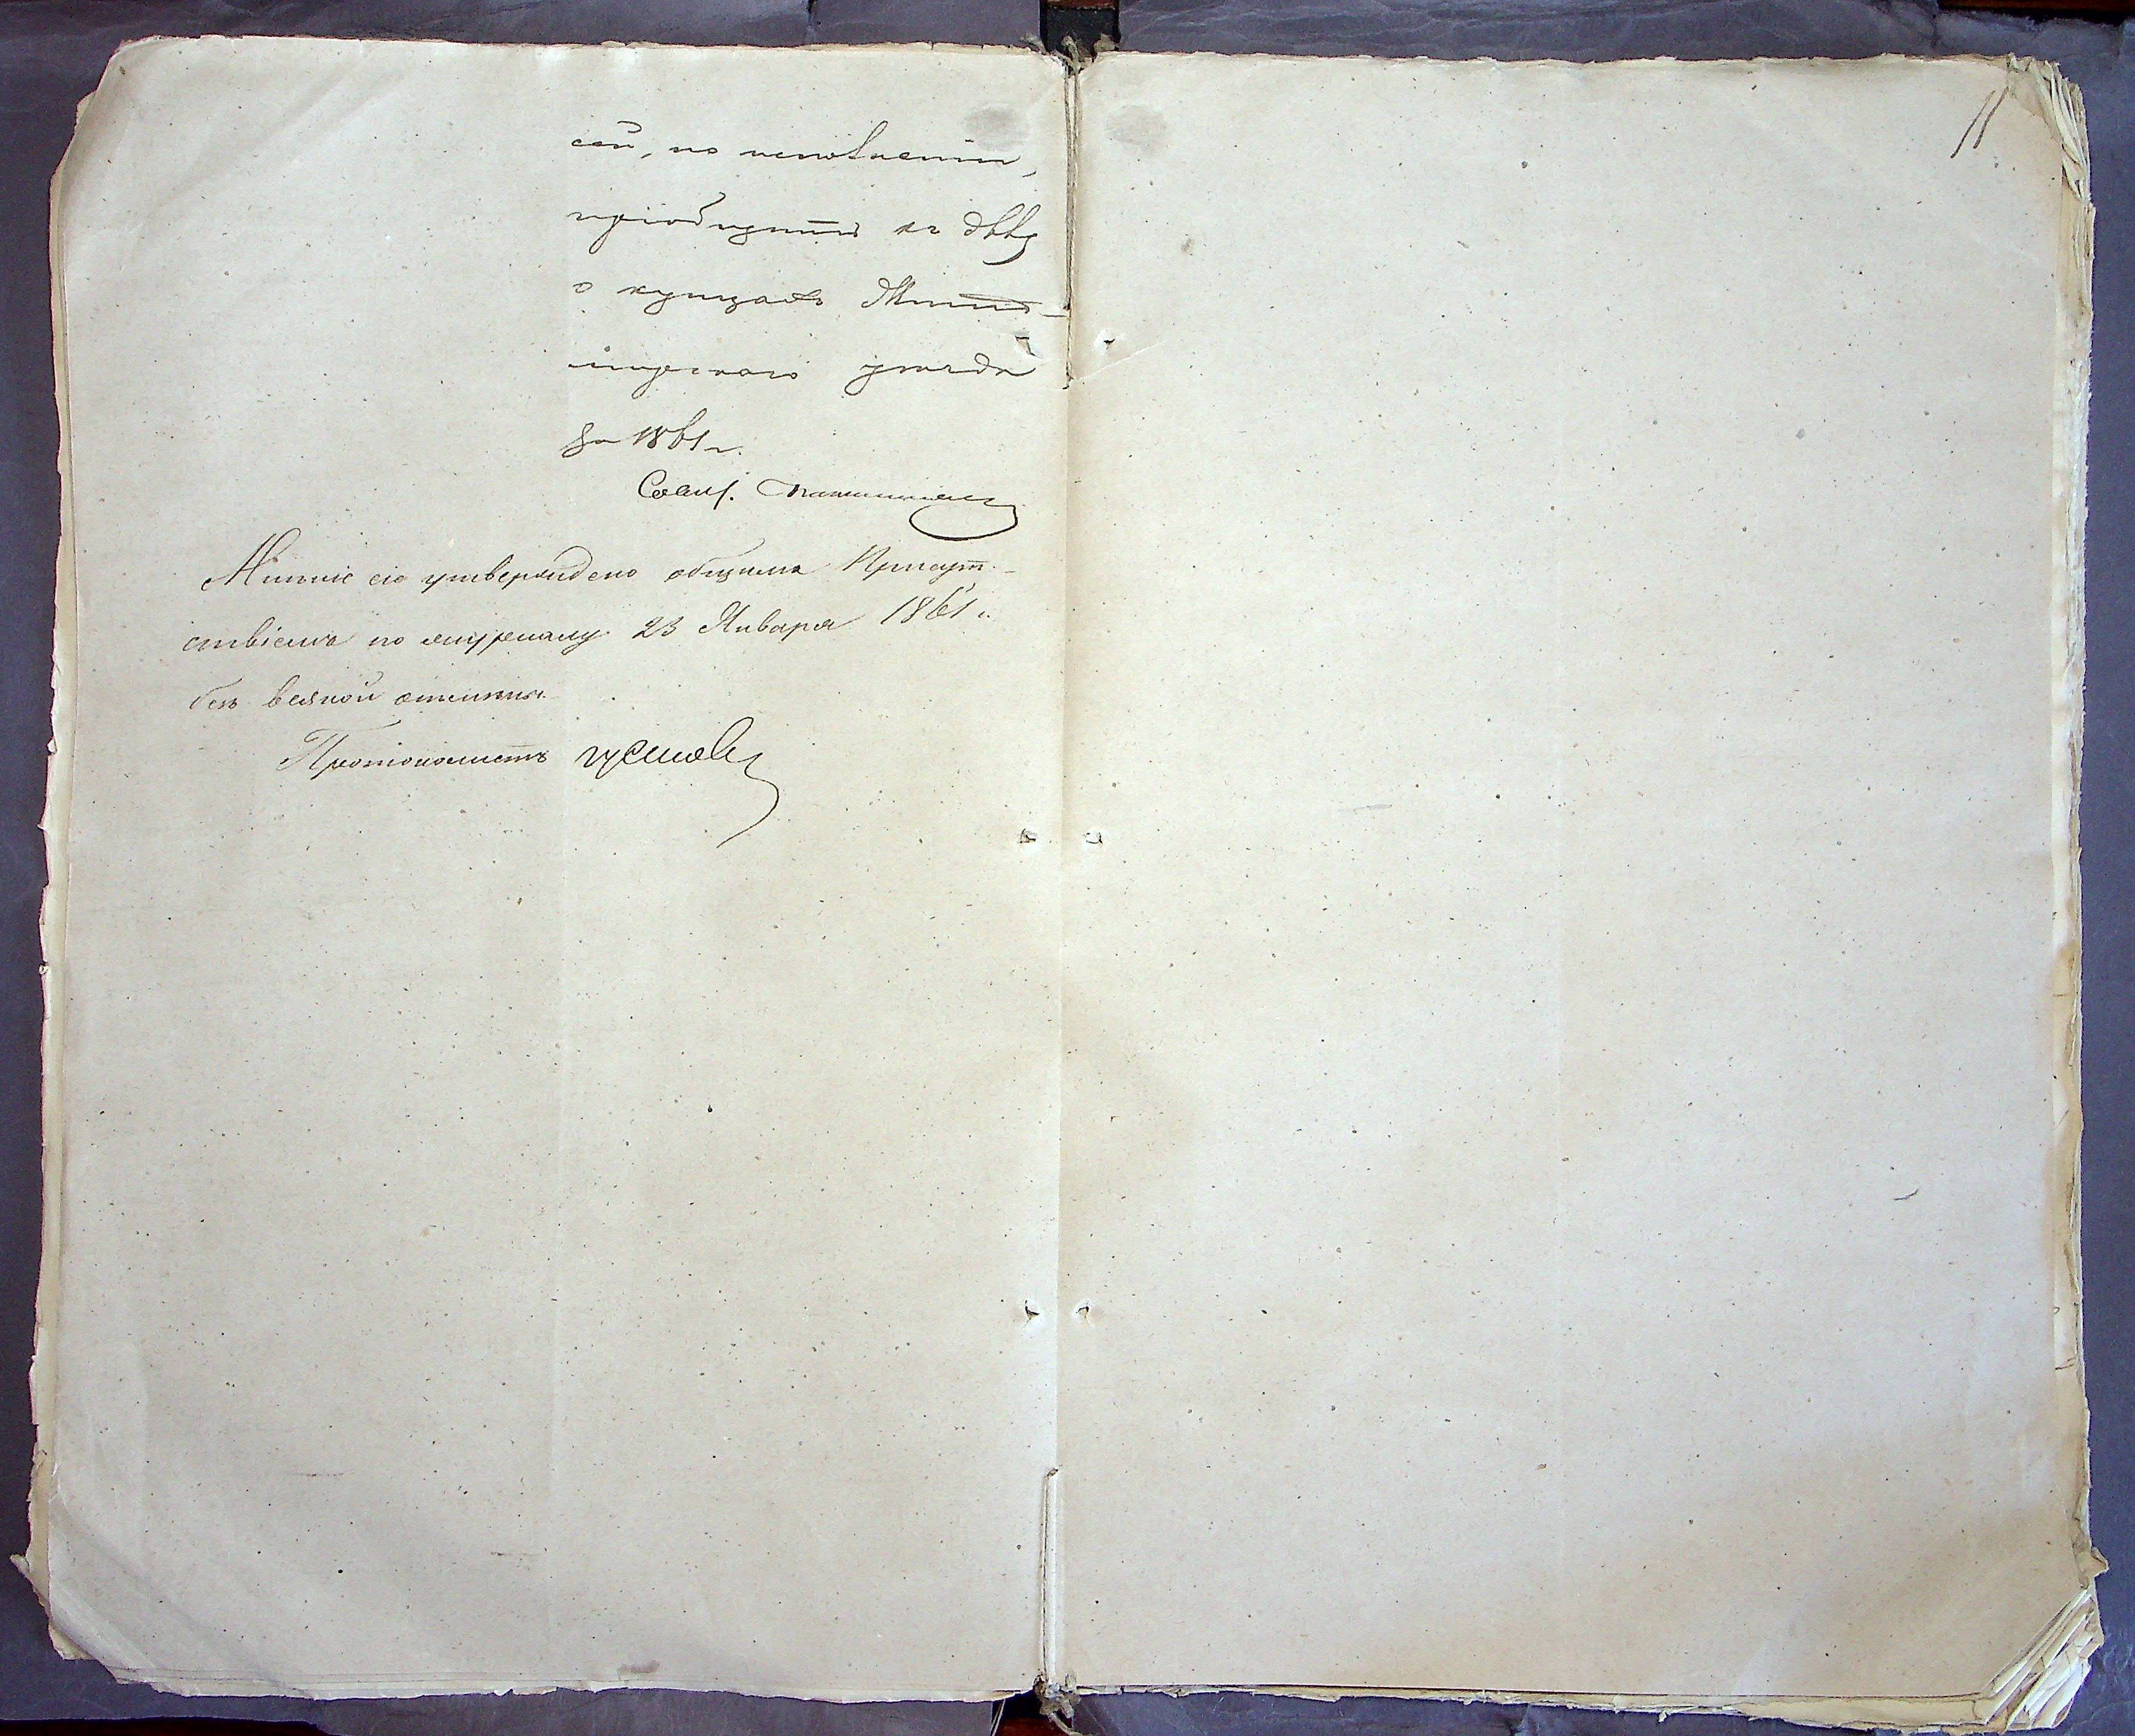 сей, по исполненіи,
пріобщить къ дѣлу
о купцахъ
уѣзда
за 1861 г.
Совѣт.
Мнѣніе сіе утверждено общимъ Присут-
ствіемъ по журналу 23 Января 1861 г.
безъ всякой отмѣны.
Протоколистъ
11